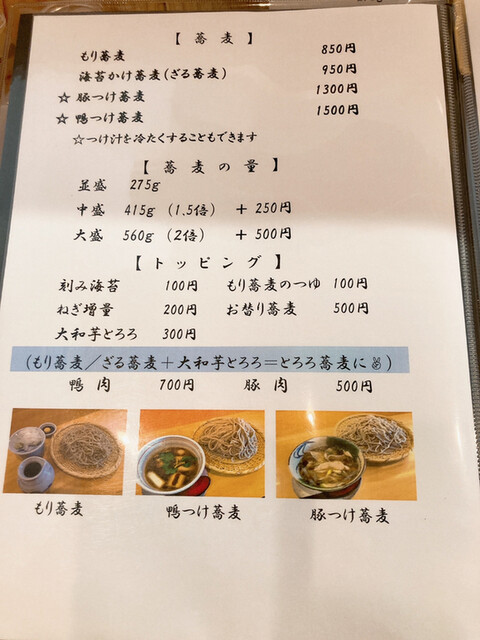 【 蕎 麦 】
もり蕎麦 850円
海苔かけ蕎麦(ざる蕎麦) 950円
☆ 豚つけ蕎麦 1300円
☆ 鴨つけ蕎麦 1500円
☆つけ汁を冷たくすることもできます
【 蕎 麦 の 量 】
並盛 275g
中盛 415g (1.5倍) + 250円
大盛 560g (2倍) + 500円
【 ト ッ ピ ン グ 】
刻み海苔 100円 もり蕎麦のつゆ 100円
ねぎ増量 200円 お替り蕎麦 500円
大和芋とろろ 300円
(もり蕎麦/ざる蕎麦+大和芋とろろ=とろろ蕎麦に✌)
鴨 肉 700円 豚 肉 500円
もり蕎麦 鴨つけ蕎麦 豚つけ蕎麦